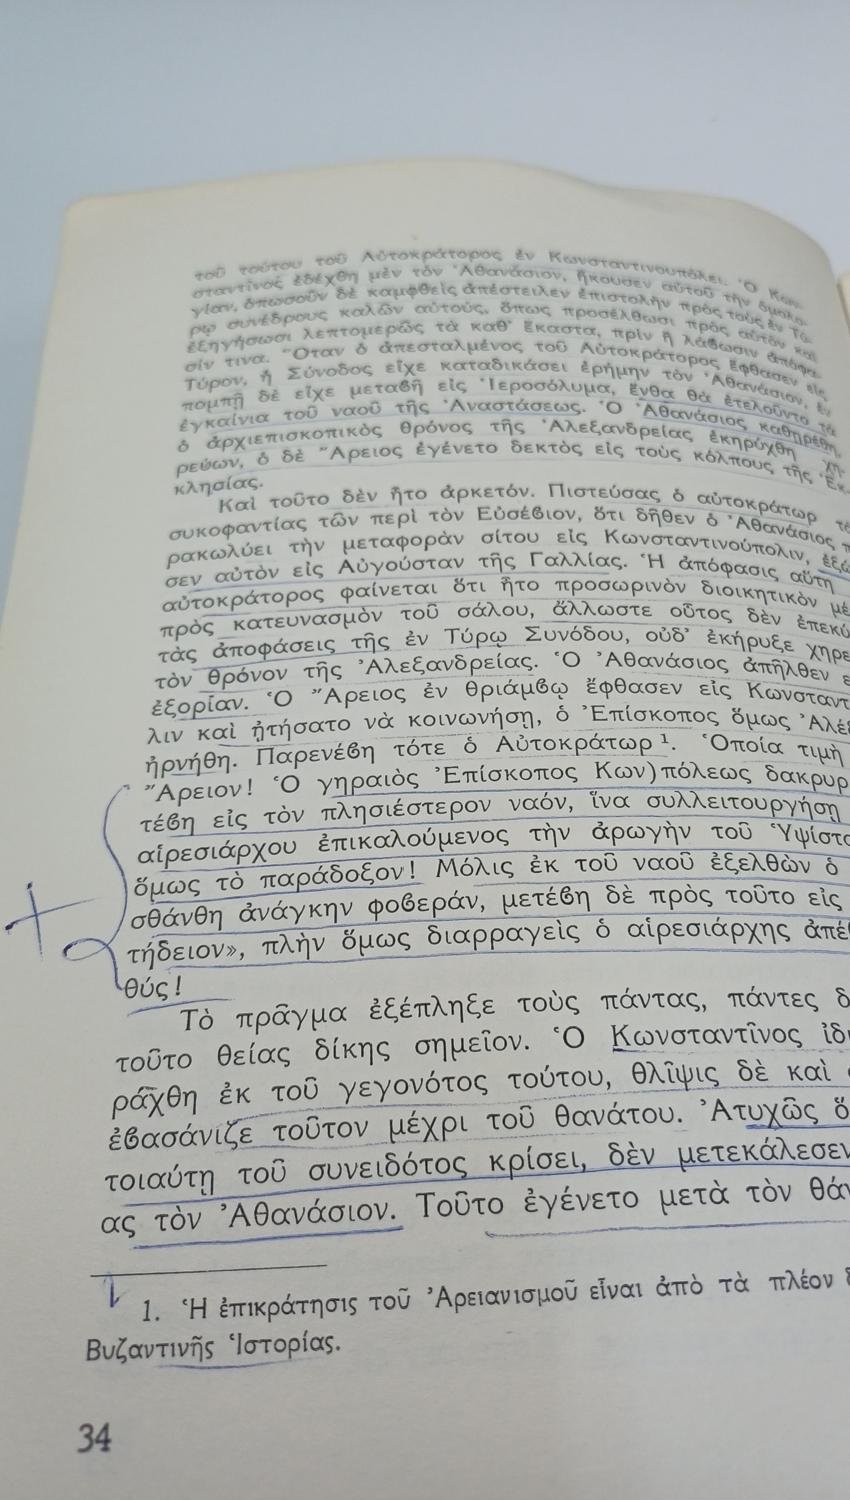 τοῦ τούτου τοῦ Αὐτοκράτορος ἐν Κωνσταντινουπόλει. Ὁ Κων-
σταντῖνος ἐδέχθη μὲν τὸν Ἀθανάσιον, ἤκουσεν αὐτοῦ τὴν ὁμολο-
γίαν, ὁπωσοῦν δὲ καμφθεὶς ἀπέστειλεν ἐπιστολὴν πρὸς τοὺς ἐν Τύ-
ρῳ συνέδρους καλῶν αὐτούς, ὅπως προσέλθωσι πρὸς αὐτὸν καὶ
ἐξηγήσωσι λεπτομερῶς τὰ καθ' ἕκαστα, πρὶν ἢ λάβωσιν ἀπόφα-
σίν τινα. Ὅταν ὁ ἀπεσταλμένος τοῦ Αὐτοκράτορος ἔφθασεν εἰς
Τύρον, ἡ Σύνοδος εἶχε καταδικάσει ἐρήμην τὸν Ἀθανάσιον, ἐν
πομπῇ δὲ εἶχε μεταβῆ εἰς Ἱεροσόλυμα, ἔνθα θὰ ἐτελοῦντο τὰ
ἐγκαίνια τοῦ ναοῦ τῆς Ἀναστάσεως. Ὁ Ἀθανάσιος καθῃρέθη,
ὁ ἀρχιεπισκοπικὸς θρόνος τῆς Ἀλεξανδρείας ἐκηρύχθη χη-
ρεύων, ὁ δὲ Ἄρειος ἐγένετο δεκτὸς εἰς τοὺς κόλπους τῆς Ἐκ-
κλησίας.
Καὶ τοῦτο δὲν ἦτο ἀρκετόν. Πιστεύσας ὁ αὐτοκράτωρ
συκοφαντίας τῶν περὶ τὸν Εὐσέβιον, ὅτι δῆθεν ὁ Ἀθανάσιος
ρακωλύει τὴν μεταφορὰν σίτου εἰς Κωνσταντινούπολιν, ἐξώ
σεν αὐτὸν εἰς Αὐγούσταν τῆς Γαλλίας. Ἡ ἀπόφασις αὕτη
αὐτοκράτορος φαίνεται ὅτι ἦτο προσωρινὸν διοικητικὸν μέ
πρὸς κατευνασμὸν τοῦ σάλου, ἄλλωστε οὗτος δὲν ἐπεκύ
τὰς ἀποφάσεις τῆς ἐν Τύρῳ Συνόδου, οὐδ' ἐκήρυξε χηρε
τὸν θρόνον τῆς Ἀλεξανδρείας. Ὁ Ἀθανάσιος ἀπῆλθεν ε
ἐξορίαν. Ὁ Ἄρειος ἐν θριάμβῳ ἔφθασεν εἰς Κωνσταντ
λιν καὶ ᾐτήσατο νὰ κοινωνήσῃ, ὁ Ἐπίσκοπος ὅμως Ἀλέ
ἠρνήθη. Παρενέβη τότε ὁ Αὐτοκράτωρ¹. Ὁποία τιμὴ
Ἄρειον! Ὁ γηραιὸς Ἐπίσκοπος Κων)πόλεως δακρυρ
τέβη εἰς τὸν πλησιέστερον ναόν, ἵνα συλλειτουργήσῃ
αἱρεσιάρχου ἐπικαλούμενος τὴν ἀρωγὴν τοῦ Ὑψίστο
ὅμως τὸ παράδοξον! Μόλις ἐκ τοῦ ναοῦ ἐξελθὼν ὁ
σθάνθη ἀνάγκην φοβεράν, μετέβη δὲ πρὸς τοῦτο εἰς
τήδειον», πλὴν ὅμως διαρραγεὶς ὁ αἱρεσιάρχης ἀπέ
θύς!
Τὸ πρᾶγμα ἐξέπληξε τοὺς πάντας, πάντες δ
τοῦτο θείας δίκης σημεῖον. Ὁ Κωνσταντῖνος ἰδι
ράχθη ἐκ τοῦ γεγονότος τούτου, θλῖψις δὲ καὶ
ἐβασάνιζε τοῦτον μέχρι τοῦ θανάτου. Ἀτυχῶς ὅ
τοιαύτῃ τοῦ συνειδότος κρίσει, δὲν μετεκάλεσεν
ας τὸν Ἀθανάσιον. Τοῦτο ἐγένετο μετὰ τὸν θάν
1. Ἡ ἐπικράτησις τοῦ Ἀρειανισμοῦ εἶναι ἀπὸ τὰ πλέον δ
Βυζαντινῆς Ἱστορίας.
34